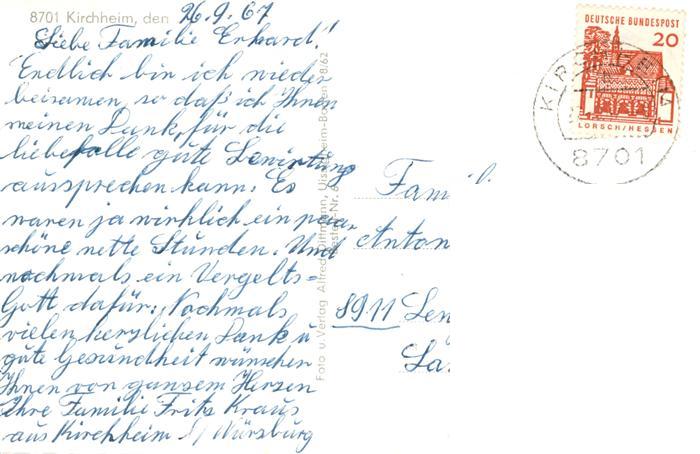 8701 Kirchheim, den 26.9.67
Liebe Familie Erhard!
Endlich bin ich wieder
beisamen, so daß ich Ihnen
meinen Dank, für die
liebefolle gute Bewirtung
aussprechen kann. Es
waren ja wirklich ein paar
schöne nette Stunden. Und
nochmals ein Vergelts=
Gott dafür. Nochmals
vielen herzlichen Dank u
gute Gesundheit wünschen
Ihnen von ganzem Herzen
Ihre Familie Fritz Kraus
aus Kirchheim b/ Würzburg
Foto u. Verlag Alfred Dittmann
Bestell-Nr.
68/62
DEUTSCHE BUNDESPOST
20
LORSCH/HESSEN
8701
Fam
Anton
8911 Len